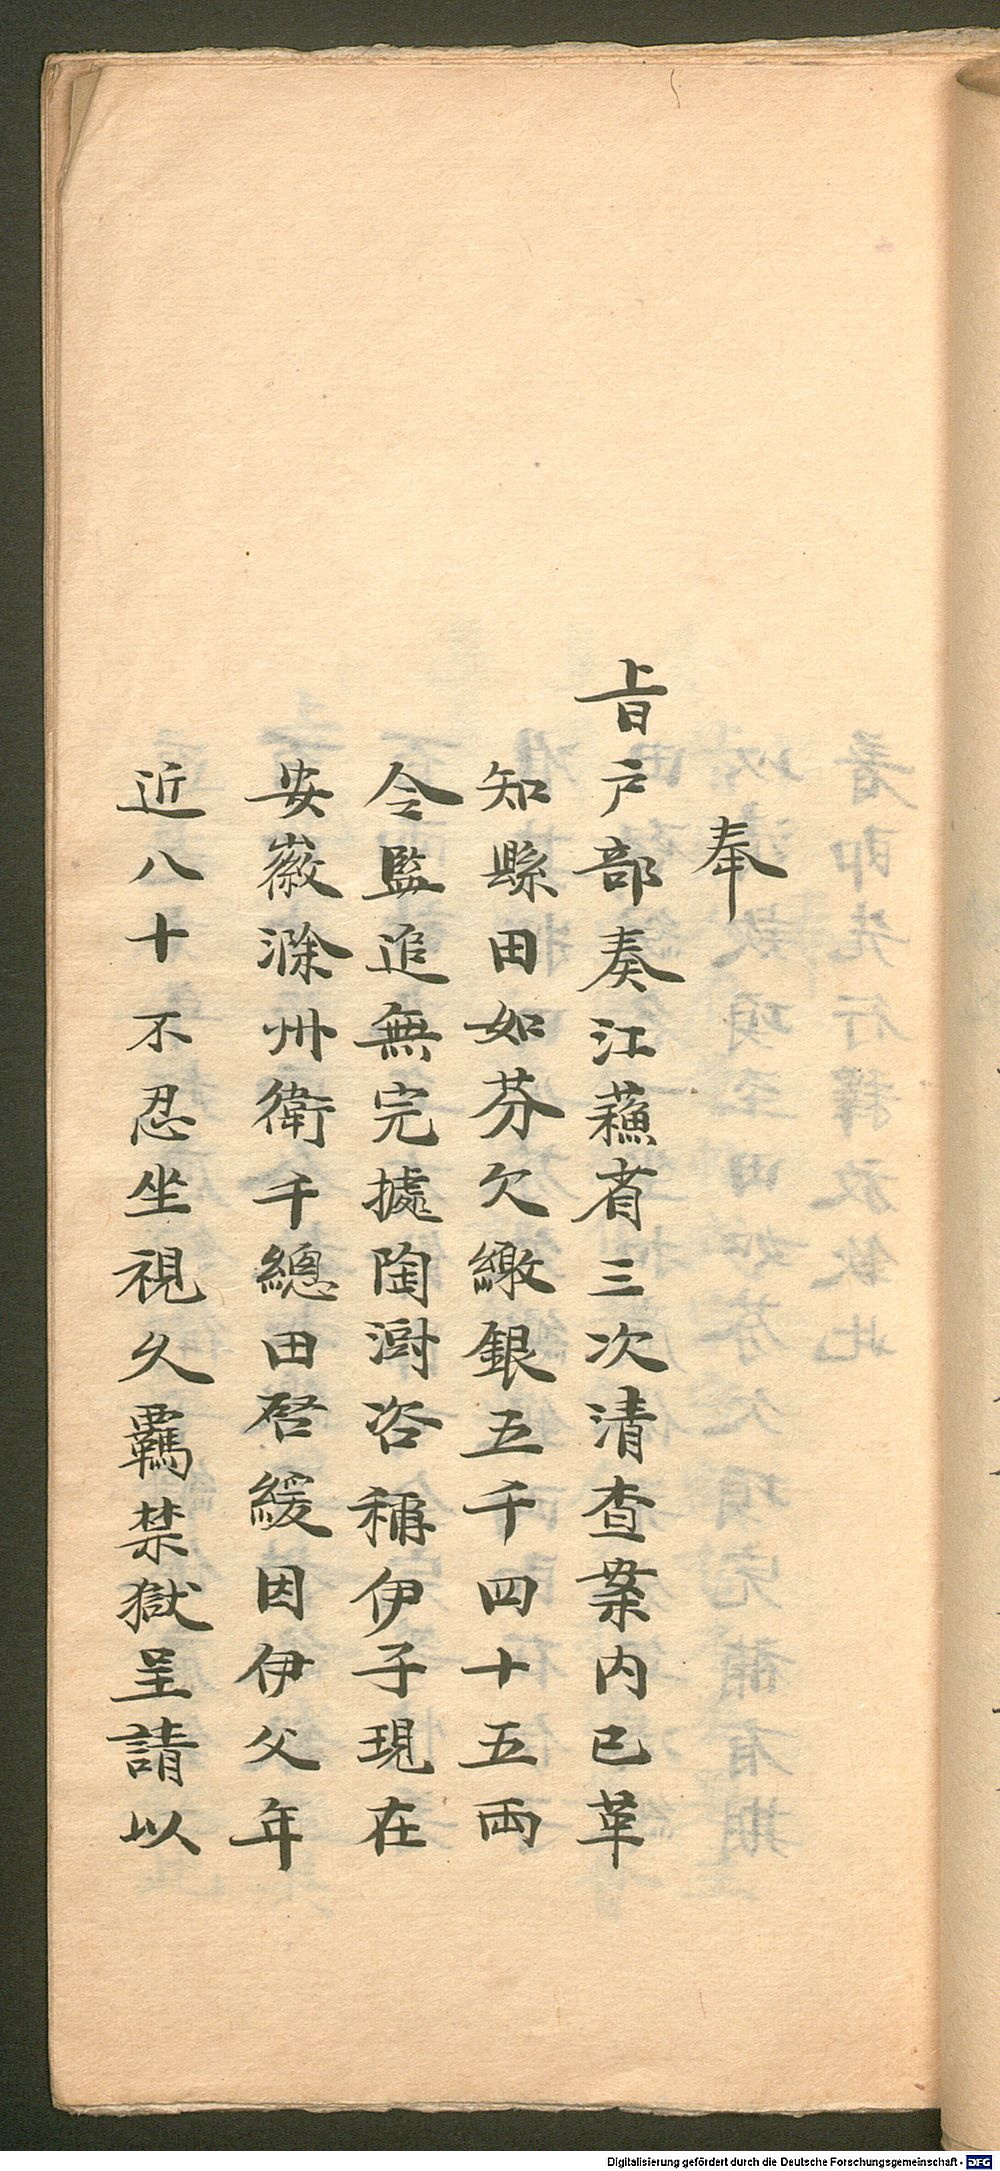 奉
旨戶部奏江蘓省三次清查案内已革
知縣田如芬欠繳銀五千四十五兩
令監追無完據陶澍咨稱伊子現在
安徽滁州衛千總田啓緩因伊父年
近八十不忍坐視久羈禁獄呈請以
Digitalisierung gefördert durch die Deutsche Forschungsgemeinschaft - DFG